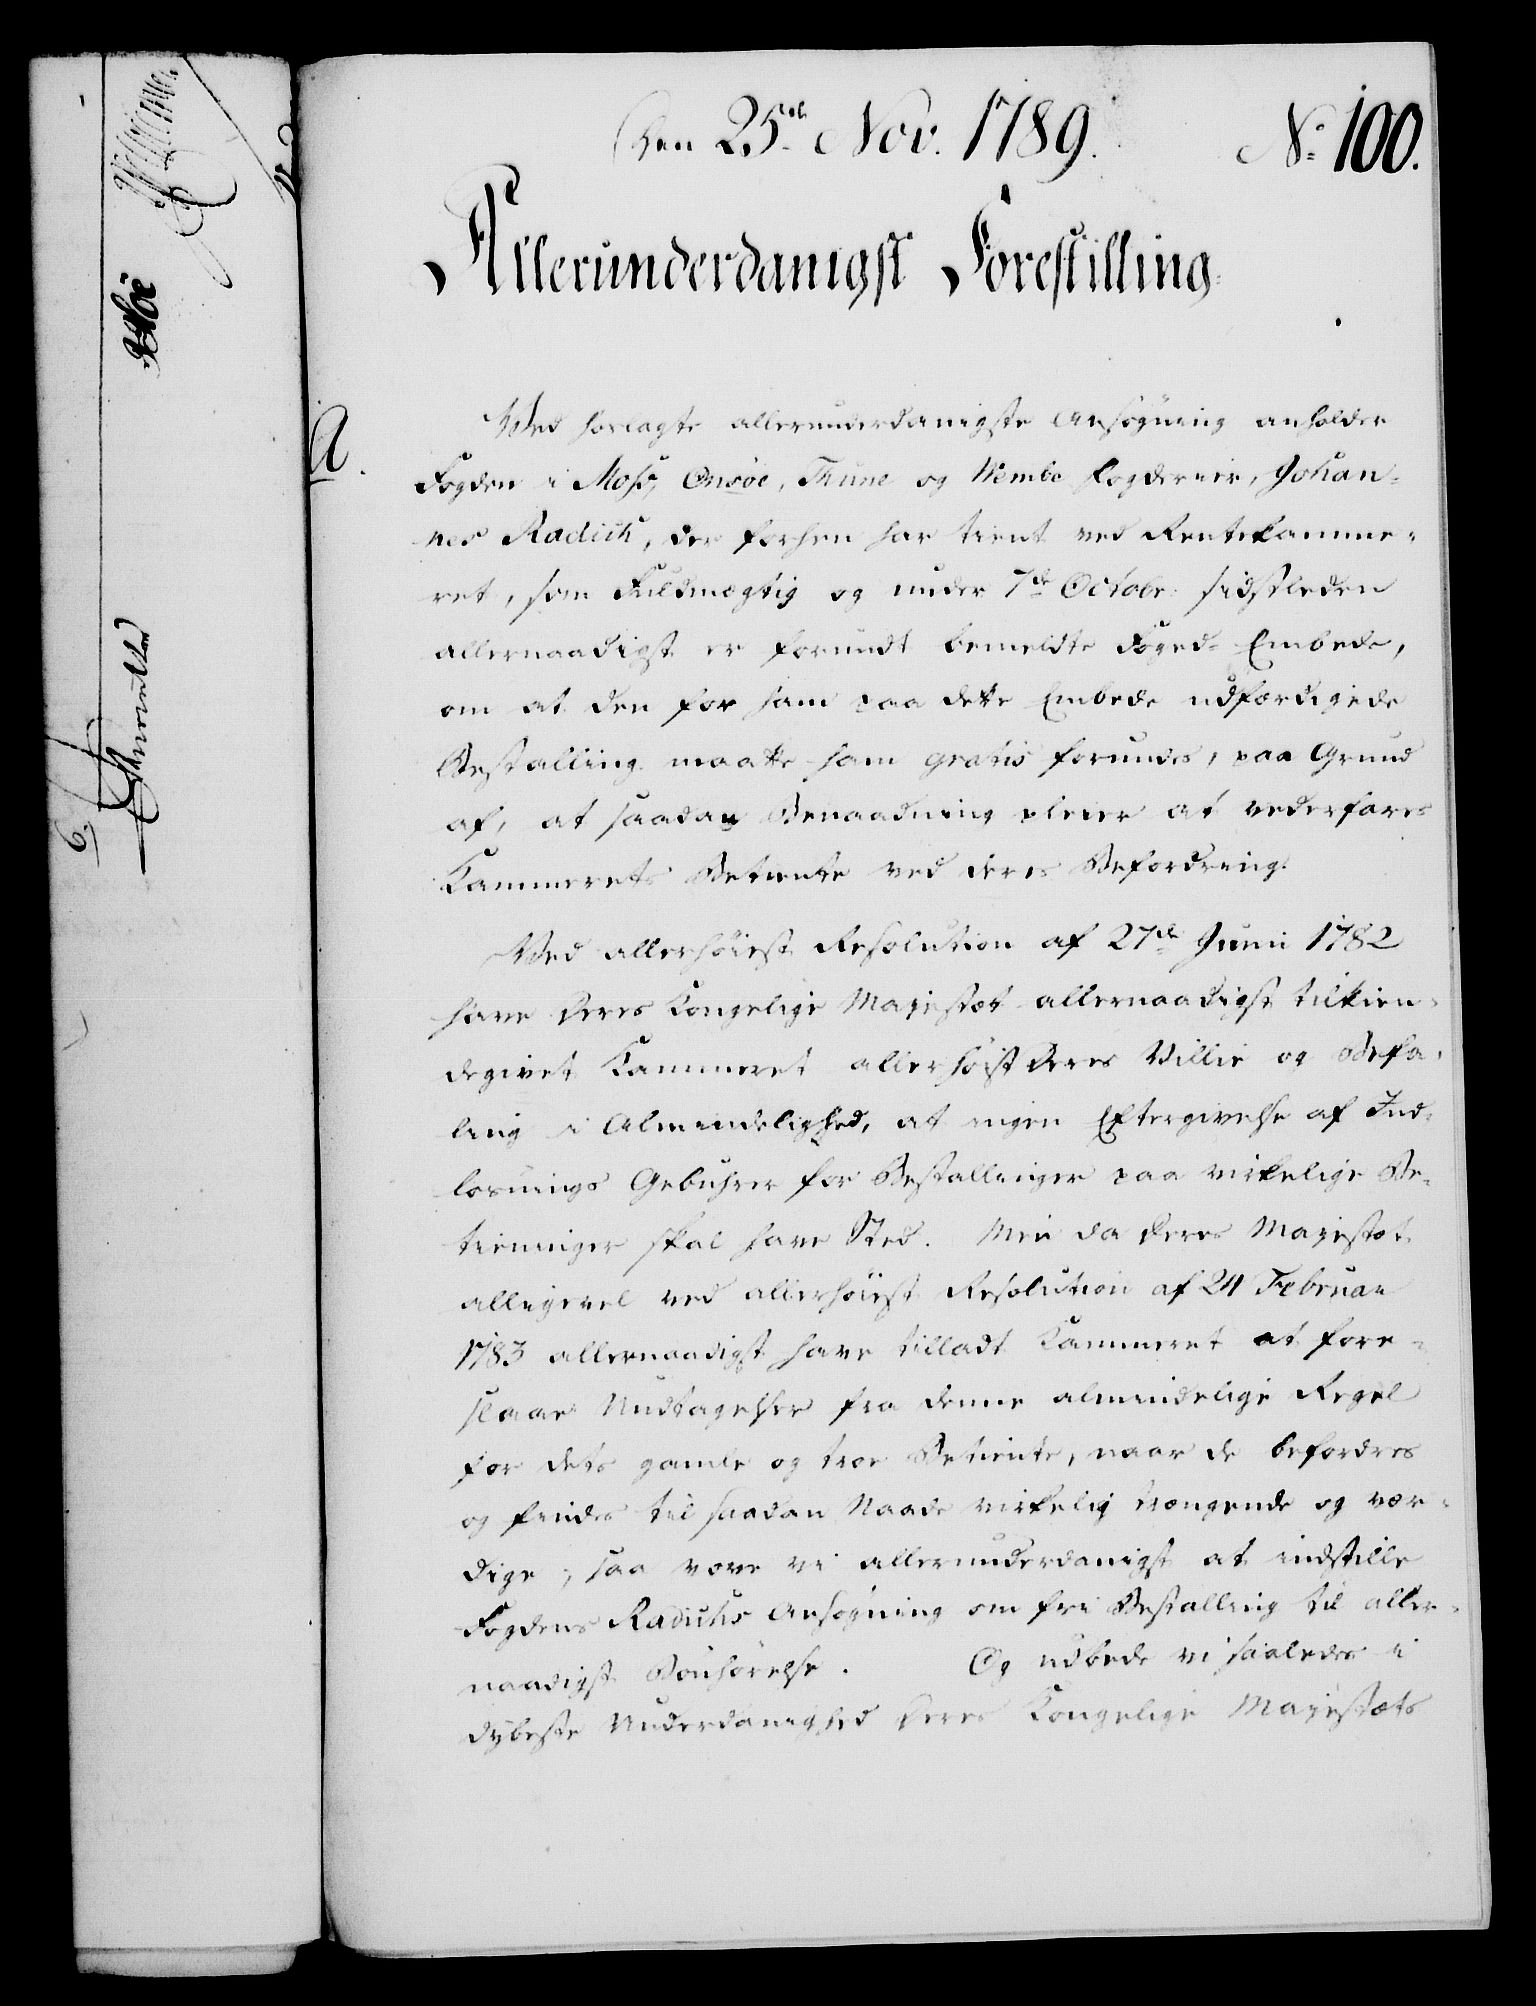 Den 25de Nov. 1789. No 100.
Allerunderdanigst Forestilling.
A.
Ved hoslagte allerunderdanigste Ansøgning anholder
Fogden i Moss, Onsøe, Thune og Wembe Fogderier, Johan-
nes Radich, der forhen har tient ved Rentekamme-
ret, som Fuldmægtig og under 7de Octobr. sidstleden
allernaadigst er forundt bemeldte Foged-Embede,
om at den for ham paa dette Embede udfærdigede
Bestalling maatte ham gratis forundes, paa Grund
af, at saadan Benaadning pleier at vederfares
Kammerets Betiente ved deres Befordring.
Ved allerhøiest Resolution af 27de Junii 1782
have Deres Kongelige Majestæt allernaadigst tilkien-
degivet Kammeret allerhøist Deres Villie og Befa-
ling i Almindelighed, at ingen Eftergivelse af Ind-
løsnings Gebuhrer for Bestallinger paa virkelige Be-
tieninger skal have Sted. Men da Deres Majestæt
alligevel ved allerhøiest Resolution af 24 Februar
1783 allernaadigst have tilladt Kammeret at fore-
slaae Undtagelser fra denne almindelige Regel
for dets gamle og troe Betiente, naar de befordres
og findes til saadan Naade virkelig trængende og vær-
dige, saa vove vi allerunderdanigst at indstille
Fogdens Radichs Ansøgning om fri Bestalling til aller-
naadigst Bønhørelse. Og udbede vi saaledes i
dybeste Underdanighed Deres Kongelige Majestæts